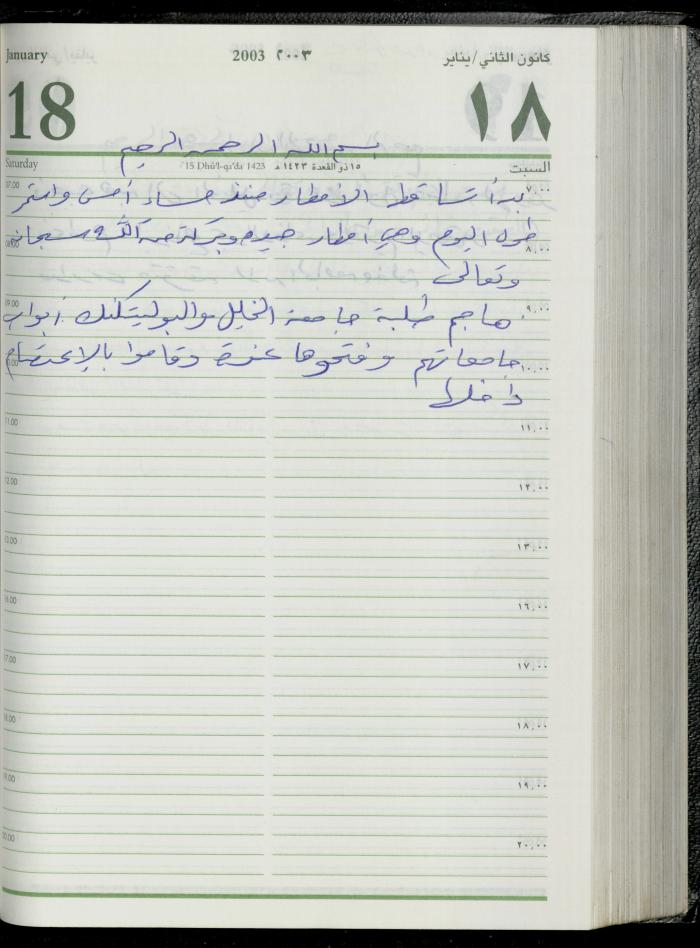 January 2003 ٢٠٠٣ كانون الثاني/يناير
18 ١٨
بسم الله الرحمن الرحيم
Saturday 15 Dhû'l-qa'da 1423 ١٥ ذو القعدة ١٤٢٣ هـ السبت
07.00 ٧,٠٠
بدأ تساقط الأمطار منذ مساء أمس واستمر
طول اليوم وهي أمطار جيدة وبركة من الله سبحانه
08.00 ٨,٠٠
وتعالى
09.00 ٩,٠٠
هاجم طلبة جامعة الخليل والبوليتكنك أبواب
جامعاتهم وفتحوها عنوة وقاموا بالاعتصام
١٠,٠٠
داخلها
11.00 ١١,٠٠
12.00 ١٢,٠٠
13.00 ١٣,٠٠
16.00 ١٦,٠٠
17.00 ١٧,٠٠
18.00 ١٨,٠٠
19.00 ١٩,٠٠
20.00 ٢٠,٠٠